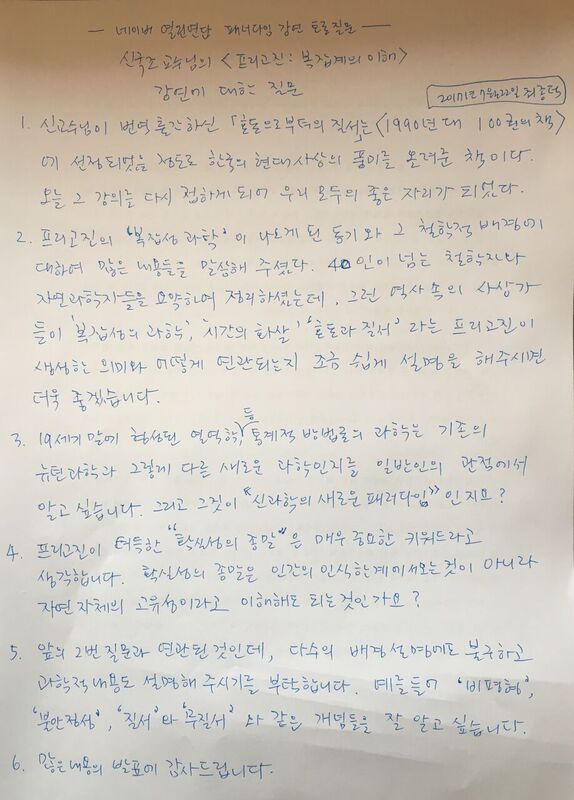 — 네이버 열린연단 패러다임 강연 토론질문 —
신국조 교수님의 <프리고진: 복잡계의 이해>
강연에 대한 질문
2017년 7월 22일 최종덕
1. 신교수님이 번역 출간하신 「혼돈으로부터의 질서」는 <1990년대 100권의 책>
에 선정되었을 정도로 한국의 현대사상의 품이를 올려준 책이다.
오늘 그 강의를 다시 접하게 되어 우리 모두의 좋은 자리가 되었다.
2. 프리고진의 "복잡성 과학"이 나오게 된 동기와 그 철학적 배경에
대하여 많은 내용들을 말씀해 주셨다. 40인이 넘는 철학자와
자연과학자들을 요약하여 정리하셨는데, 그런 역사 속의 사상가
들이 '복잡성의 과학', '시간의 화살' '혼돈과 질서' 라는 프리고진이
생성하는 의미와 어떻게 연관되는지 조금 쉽게 설명을 해주시면
더욱 좋겠습니다.
3. 19세기 말에 형성된 열역학 등 통계적 방법론의 과학은 기존의
뉴턴과학과 그렇게 다른 새로운 과학인지를 일반인의 관점에서
알고 싶습니다. 그리고 그것이 《신과학의 새로운 패러다임》인지요?
4. 프리고진이 터득한 "확실성의 종말"은 매우 중요한 키워드라고
생각합니다. 확실성의 종말은 인간의 인식한계에서 오는 것이 아니라
자연 자체의 고유성이라고 이해해도 되는 것인가요?
5. 앞의 2번 질문과 연관된 것인데, 다수의 배경설명에도 불구하고
과학적 내용도 설명해 주시기를 부탁합니다. 예를 들어 '비평형',
'불안정성', '질서'와 '무질서'와 같은 개념들을 잘 알고 싶습니다.
6. 많은 내용의 발표에 감사드립니다.